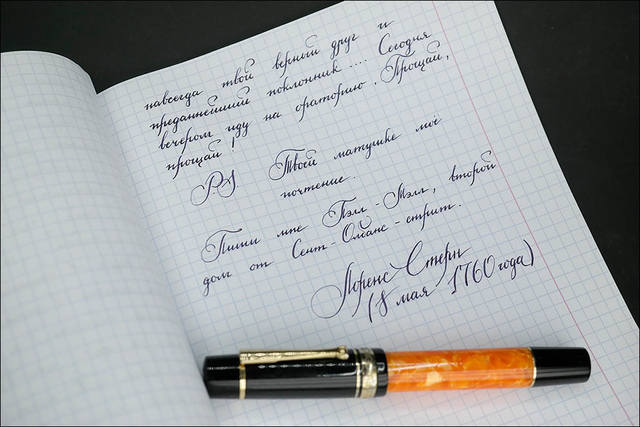 навсегда твой верный друг и
преданнейший поклонник.... Сегодня
вечером иду на ораторию. Прощай,
прощай!
P.S Твоей матушке моё
почтение.
Пиши мне Пэлл-Мэлл, второй
дом от Сент-Олбанс-стрит.
Лоренс Стерн
(8 мая 1760 года)